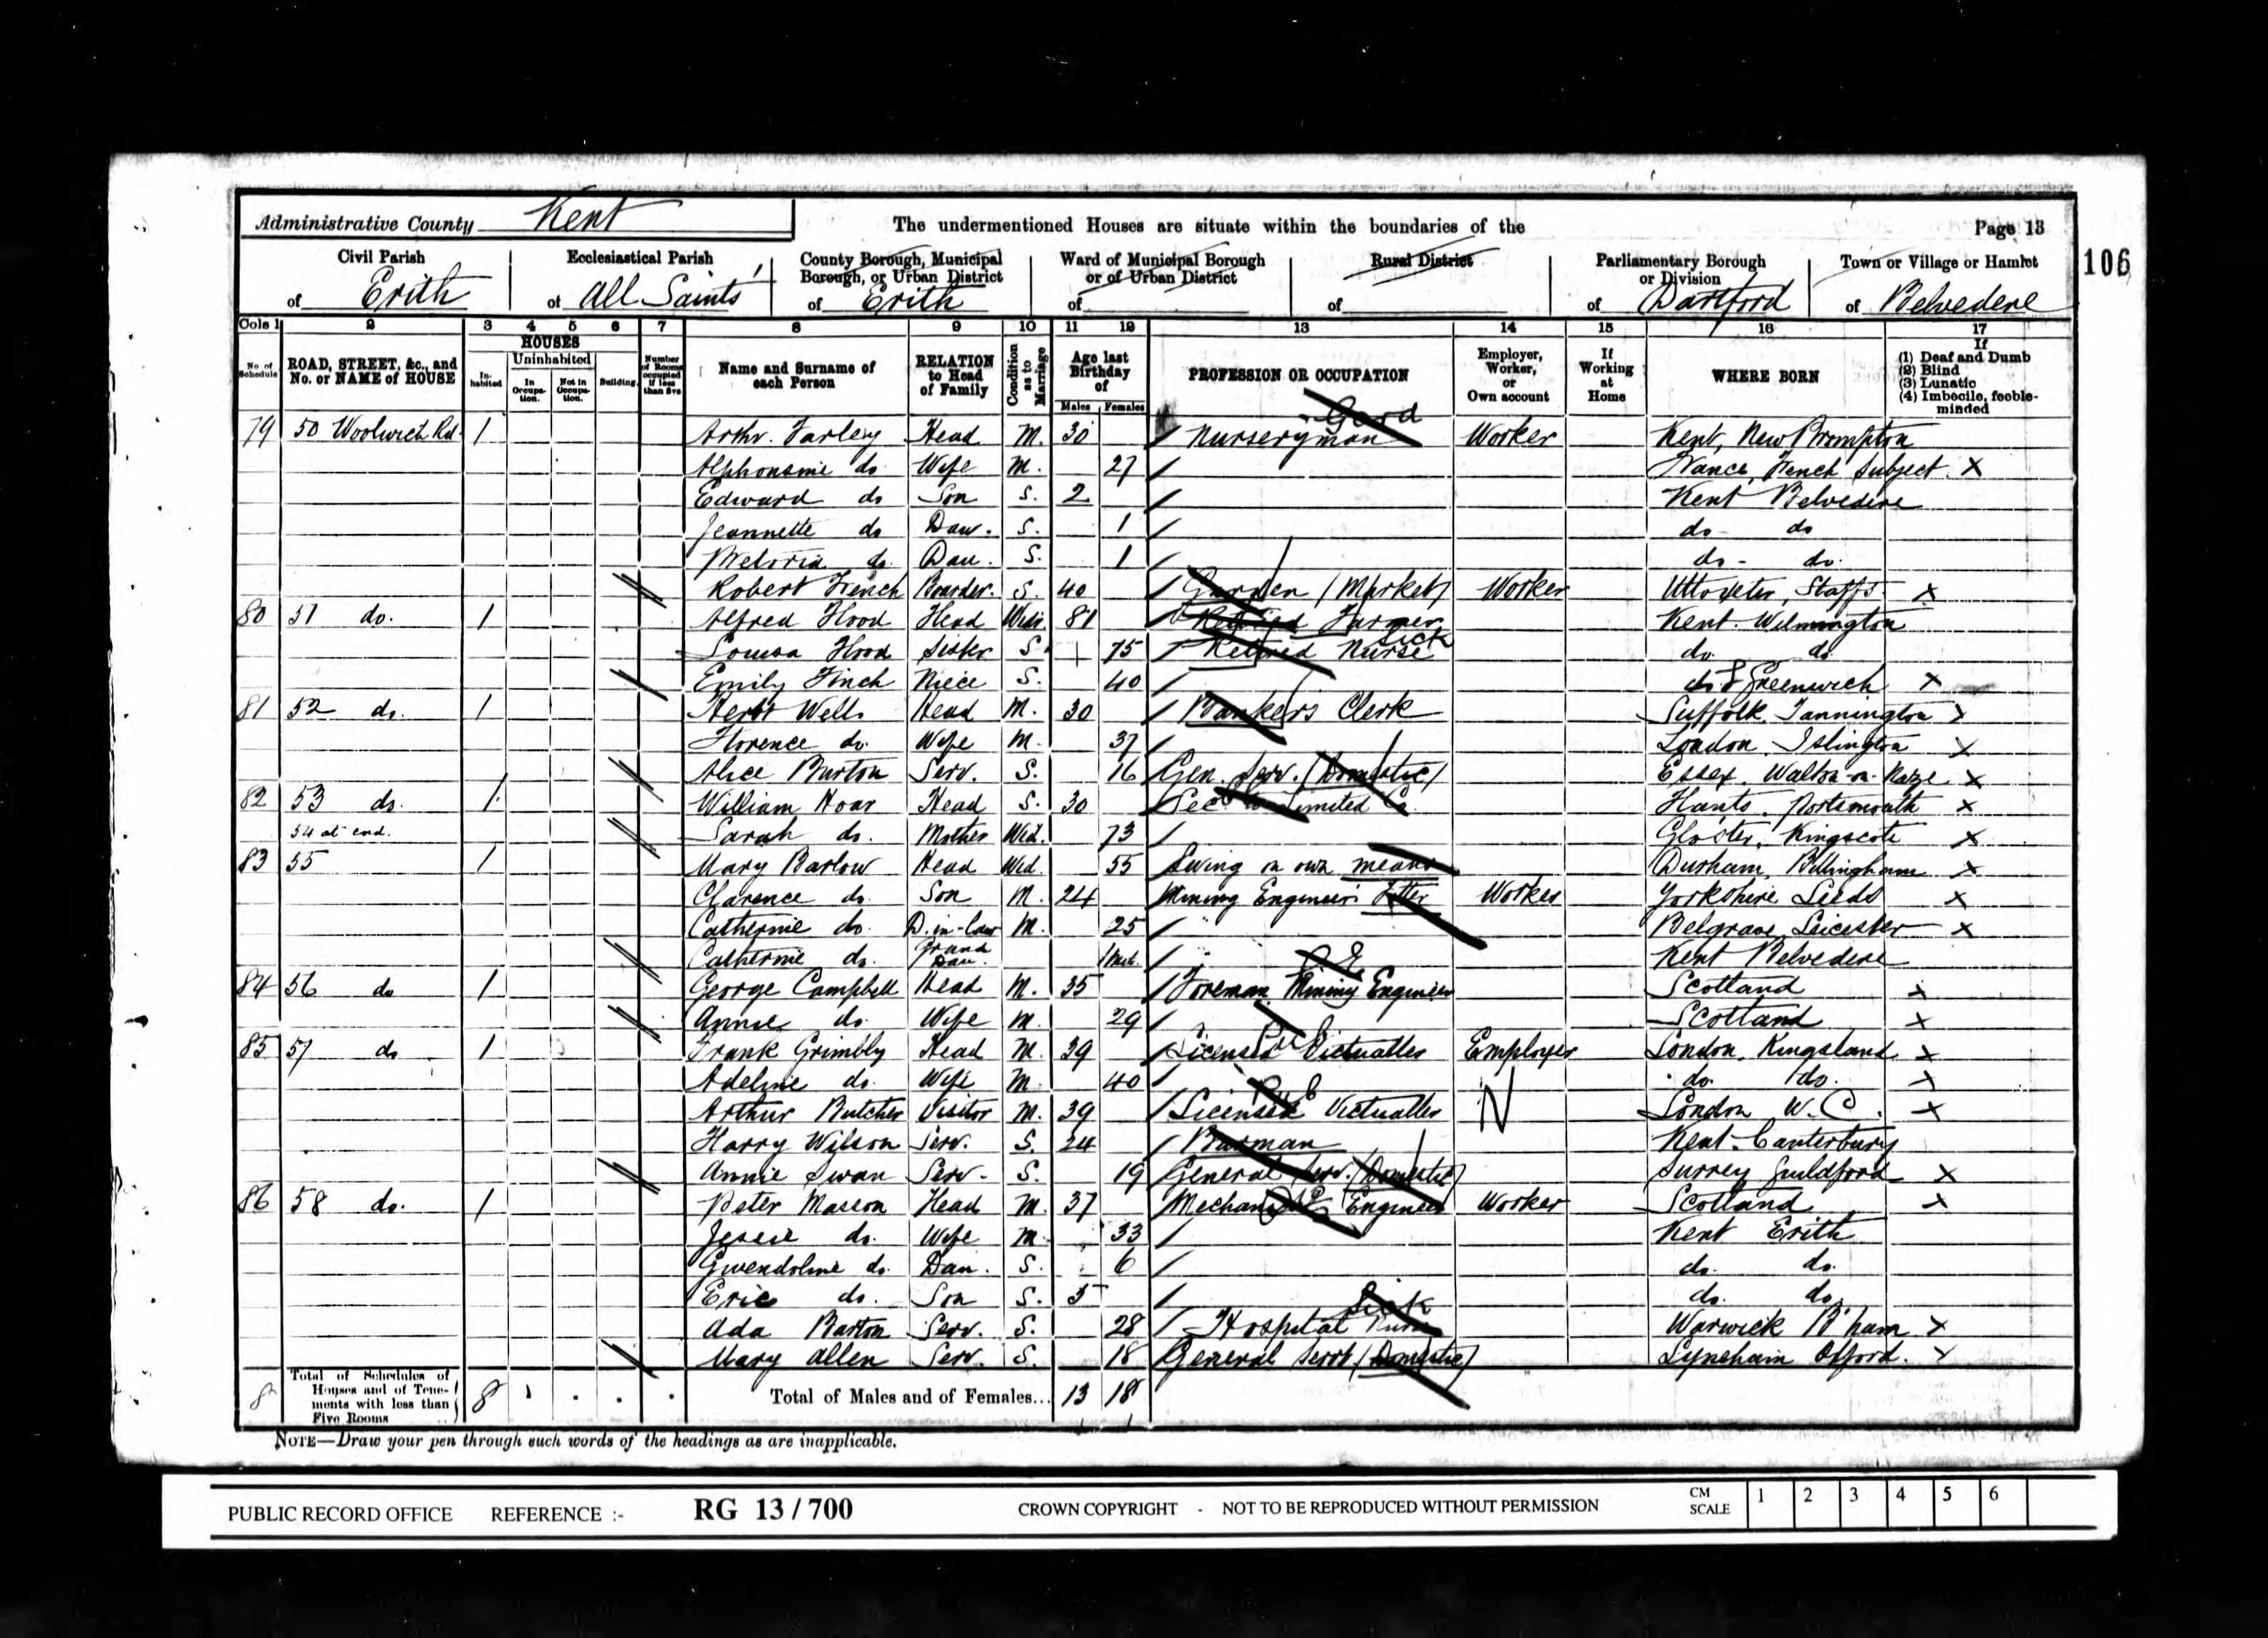 Administrative County Kent
The undermentioned Houses are situate within the boundaries of the
Page 13
106
Civil Parish of Erith
Ecclesiastical Parish of All Saints'
County Borough, Municipal Borough, or Urban District of Erith
Ward of Municipal Borough or of Urban District of
Rural District of
Parliamentary Borough or Division of Dartford
Town or Village or Hamlet of Belvedere
Cols 1 2 3 4 5 6 7 8 9 10 11 12 13 14 15 16 17
No of Schedule
ROAD, STREET, &c., and No. or NAME of HOUSE
HOUSES
Inhabited
Uninhabited
In Occupation.
Not in Occupation.
Building.
Number of Rooms occupied if less than five
Name and Surname of each Person
RELATION to Head of Family
Condition as to Marriage
Age last Birthday of
Males Females
PROFESSION OR OCCUPATION
Employer, Worker, or Own account
If Working at Home
WHERE BORN
If (1) Deaf and Dumb (2) Blind (3) Lunatic (4) Imbecile, feeble-minded
Gard
79 50 Woolwich Rd. 1 Arthr. Farley Head M. 30 Nurseryman Worker Kent, New Brompton
Alphonsine do Wife M. 27 France, French Subject X
Edward do Son S. 2 Kent Belvedere
Jeannette do Daw. S. 1 do do
do. Dau. S. 1 do do.
Robert French Boarder. S. 40 Garden (Market) Worker Uttoxeter, Staffs. X
80 51 do. 1 Alfred Hood Head Widr. 81 Retired Farmer Kent. Wilmington
Sick
Louisa Hood Sister S. 75 Retired Nurse do. do.
Emily Finch Niece S. 40 do Greenwich X
81 52 do. 1 Herbt Wells Head M. 30 Bankers Clerk Suffolk, Tannington X
Florence do. Wife M. 37 London. Islington X
Alice Burton Serv. S. 16 Gen. Serv. (Domestic) Essex. Walton-on-Naze X
82 53 do. 1 William Hoar Head S. 30 Secy to Limited Co. Hants. Portsmouth X
54 at end. Sarah do. Mother Wid. 73 Gloster. Kingscote X
83 55 1 Mary Barlow Head Wid. 55 Living on own means Durham, Billingham X
Clarence do. Son M. 24 Mining Engineers Fitter Worker Yorkshire Leeds X
Catherine do. D.in-law M. 25 Belgrave, Leicester X
Catherine do. Grand Dau. 1 Mth. Kent Belvedere
84 56 do 1 George Campbell Head M. 35 Foreman Mining Engineer Scotland X
Annie do. Wife M. 29 Scotland X
85 57 do 1 Frank Grimbly Head M. 39 Licensed Victualler Employer London. Kingsland X
Adeline do. Wife M. 40 do. do. X
Arthur Butcher Visitor M. 39 Licensed Victualler N London W.C. X
Harry Wilson Serv. S. 24 Barman Kent. Canterbury
Annie Swan Serv. S. 19 General Serv. (Domestic) Surrey Guildford X
86 58 do. 1 Peter Masson Head M. 37 Mechanical Engineer Worker Scotland X
Jessie do. Wife M. 33 Kent Erith
Gwendoline do. Dau. S. 6 do. do.
Eric do. Son S. 5 do. do.
Sick
Ada Barton Serv. S. 28 Hospital Nurse Warwick B'ham X
Mary Allen Serv. S. 18 General Servt (Domestic) Lyneham Oxford. X
8 Total of Schedules of Houses and of Tenements with less than Five Rooms 8 Total of Males and of Females... 13 18
NOTE—Draw your pen through such words of the headings as are inapplicable.
PUBLIC RECORD OFFICE REFERENCE :- RG 13 / 700 CROWN COPYRIGHT - NOT TO BE REPRODUCED WITHOUT PERMISSION CM SCALE 1 2 3 4 5 6